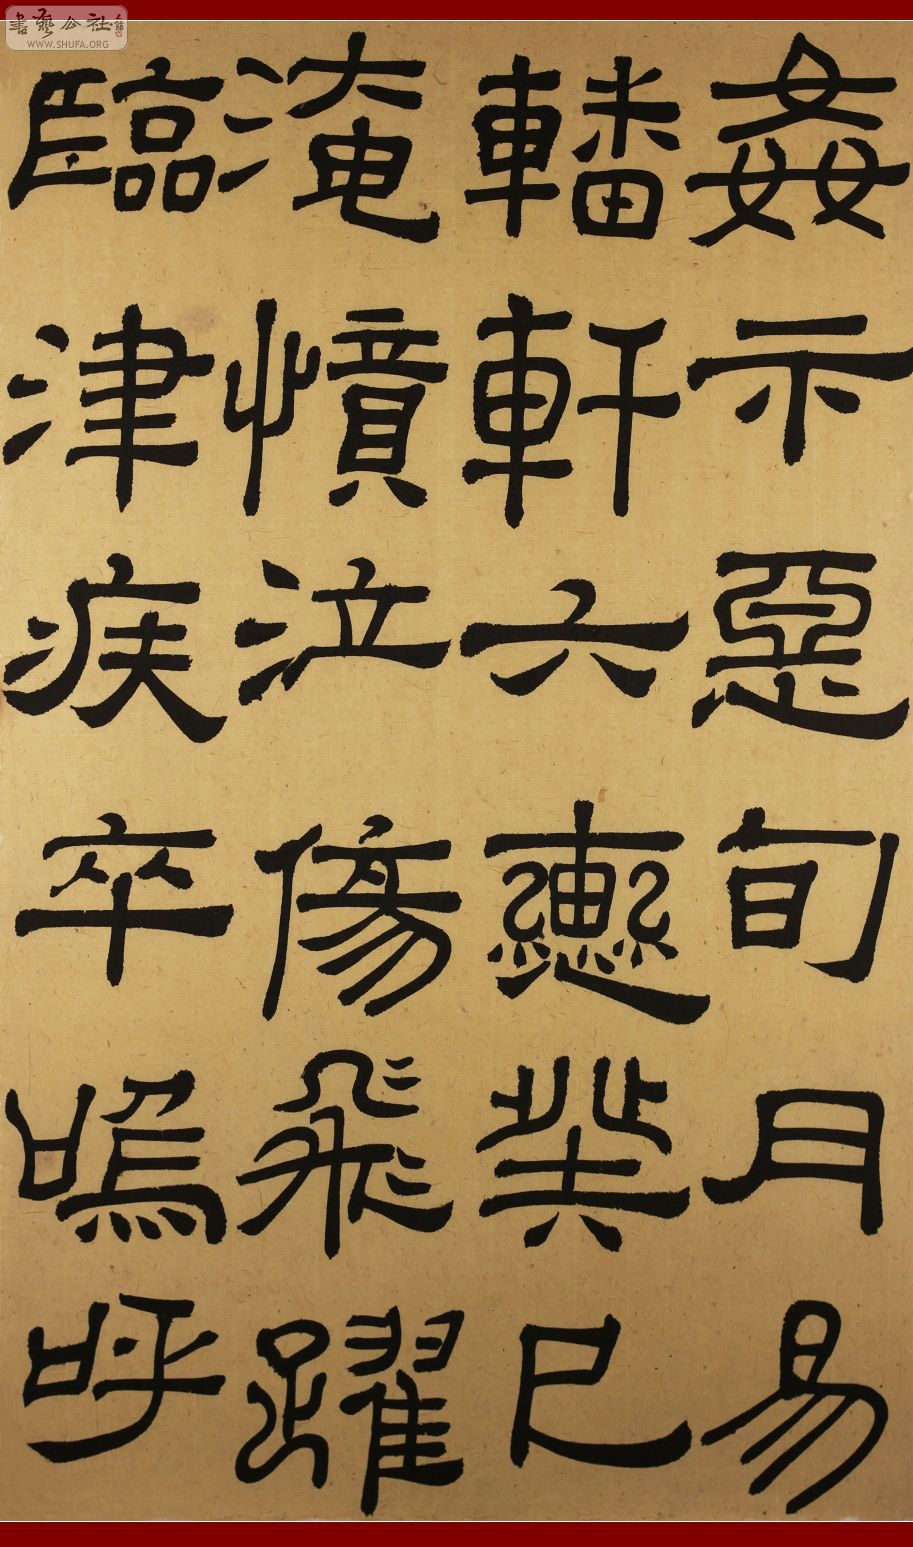 姦示惡旬月易
轓軒六轡癸巳
淹憤泣傷飛躍
臨津疾卒嗚呼
書藝公社
WWW.SHUFA.ORG